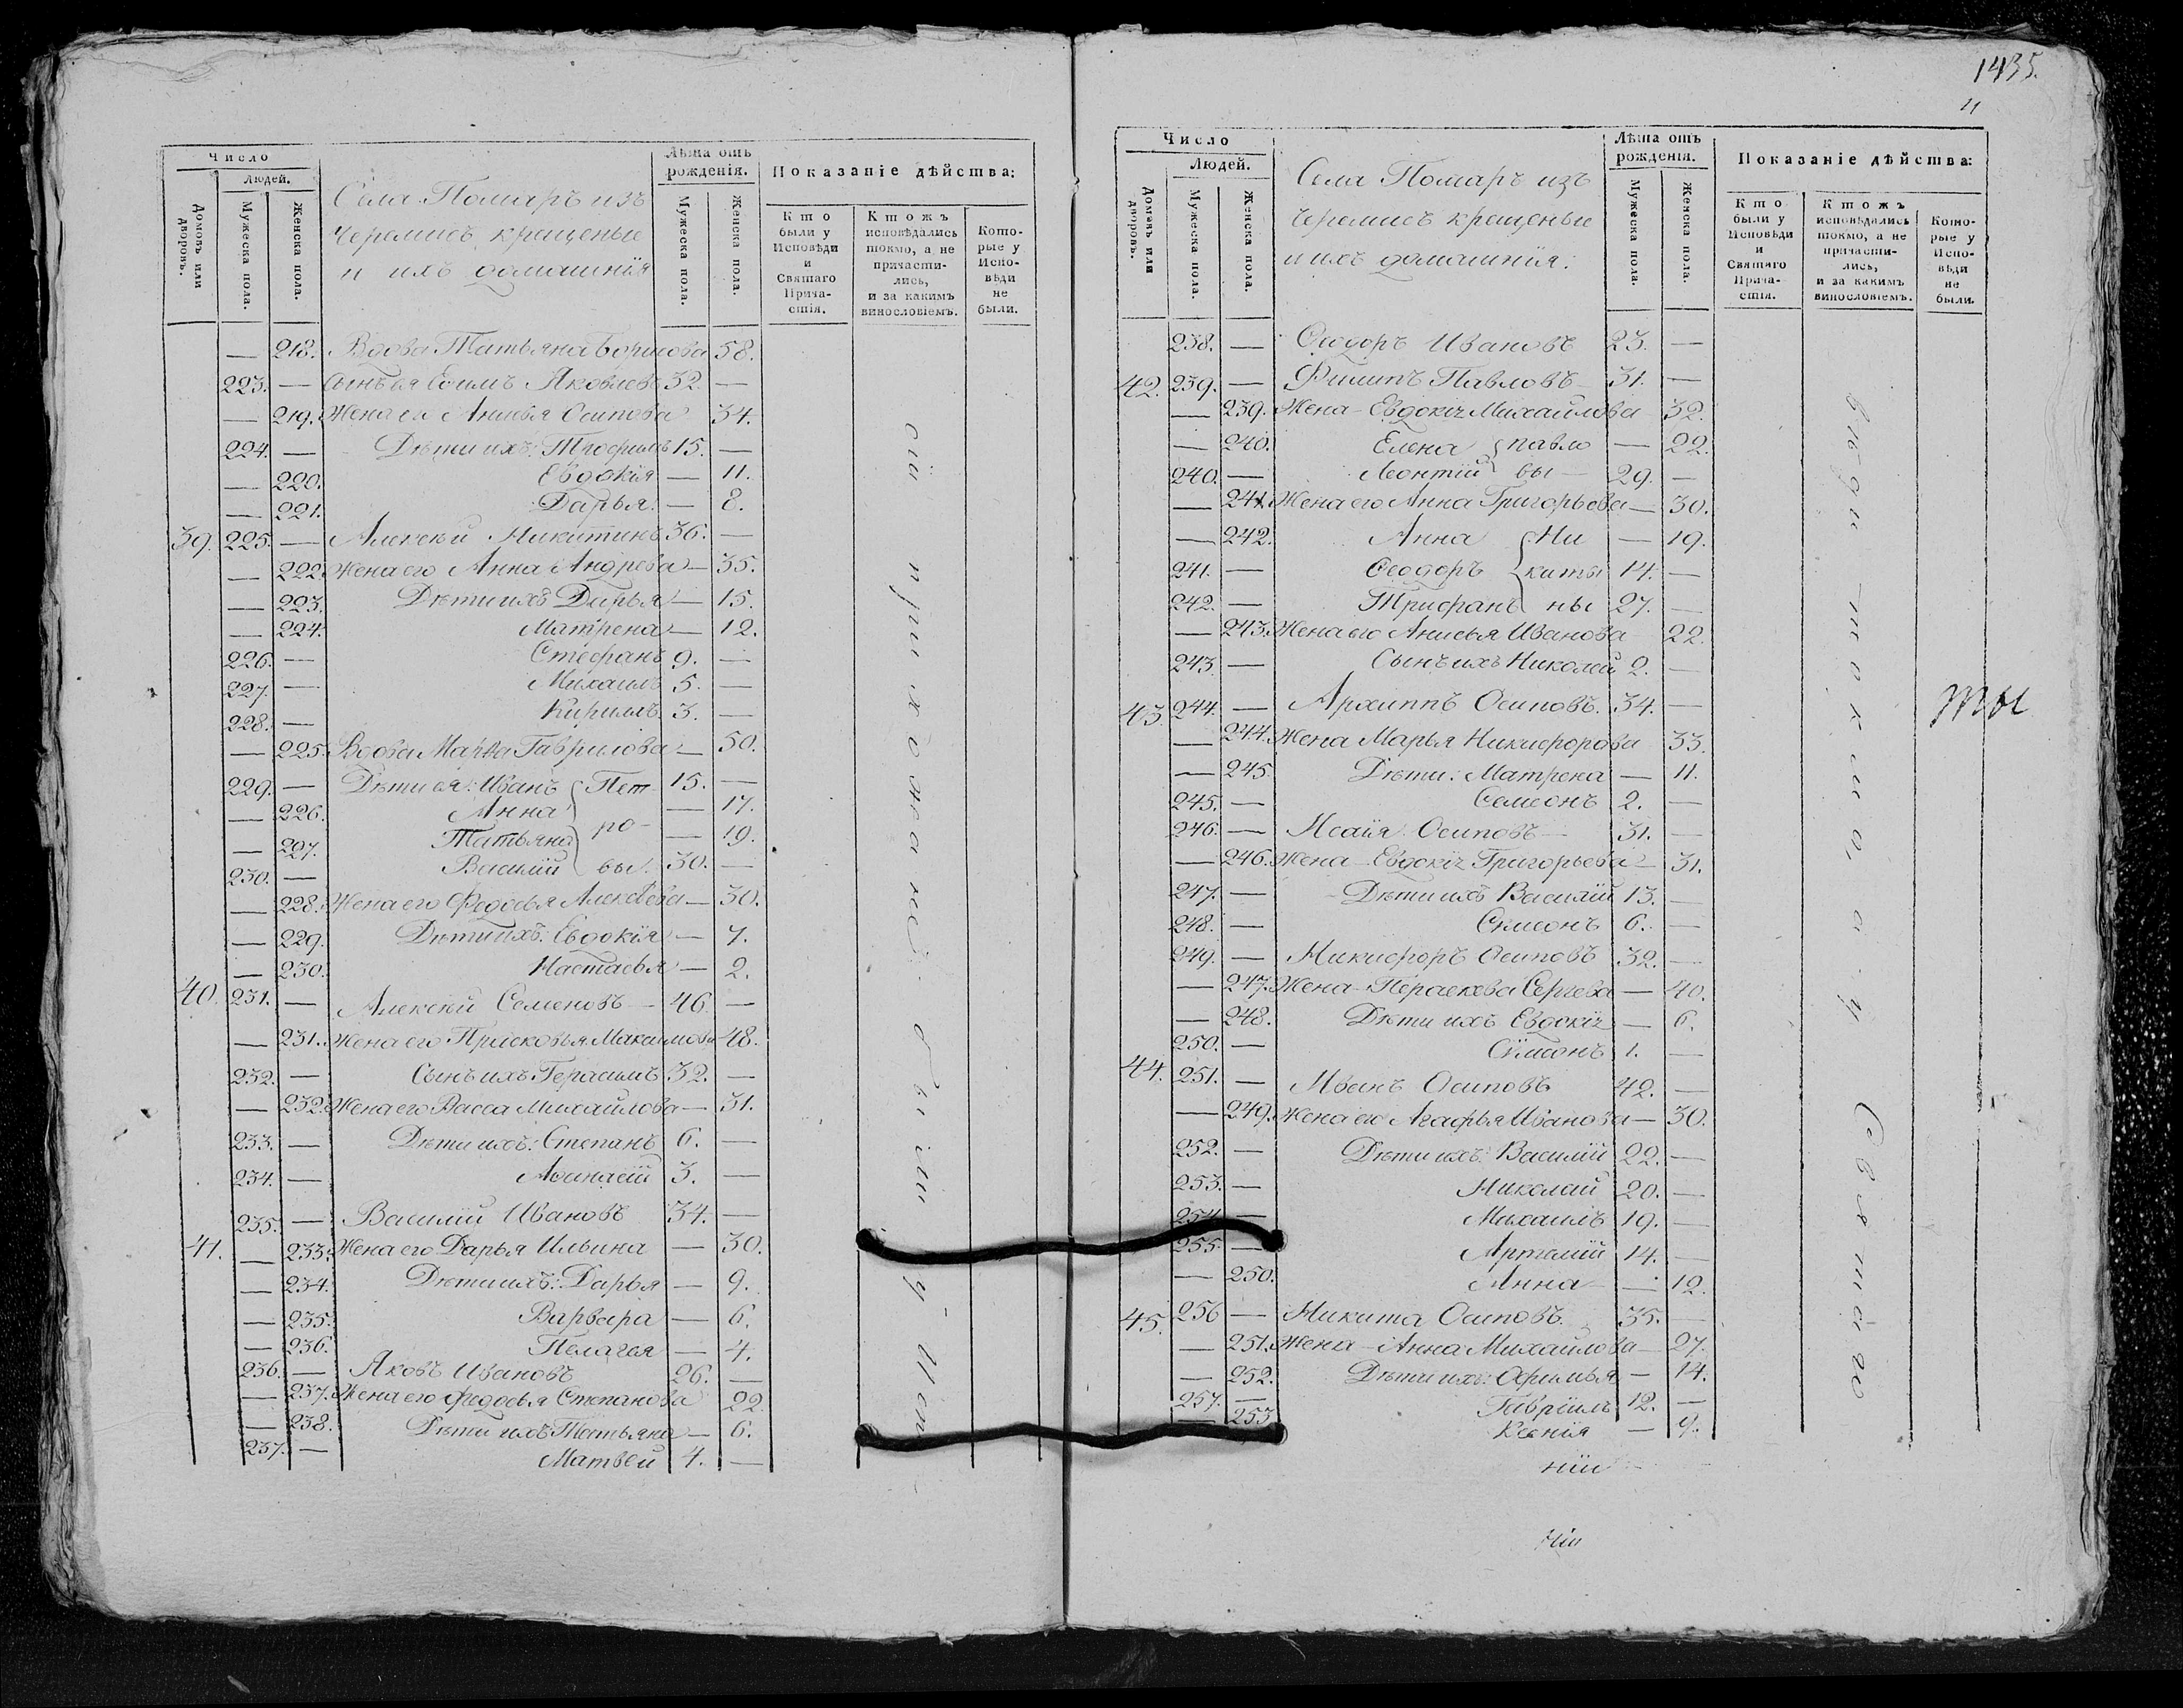 Число
Людей.
Домовъ или дворовъ.
Мужеска пола.
Женска пола.
Села Помаръ изъ
Черемисъ крещеные
и ихъ домашнія
Лѣта отъ рожденія.
Мужеска пола.
Женска пола.
Показаніе дѣйства:
Кто были у Исповѣди и Святаго Прича-стія.
Ктожъ исповѣдались токмо, а не причасти-лись, и за какимъ винословіемъ.
Кото-рые у Испо-вѣди не были.
— 218. Вдова Татьяна Борисова 58.
223. — Сынъ ея Ефимъ Яковлевъ 32 —
— 219. Жена его Анисья Осипова 34.
224. — Дѣти ихъ: Трофимъ 15. —
— 220. Евдокія — 11.
— 221. Дарья. — 8.
39. 225. — Алексѣй Никитинъ 36. —
— 222. Жена его Анна Андрева — 35.
— 223. Дѣти ихъ Дарья — 15.
— 224. Матрена — 12.
226. — Стефанъ 9. —
227. — Михаилъ 5. —
228. — Кирилъ 3. —
— 225. Вдова Марѳа Гаврилова — 50.
229. — Дѣти ея: Иванъ Пет 15. —
— 226. Анна — 17.
— 227. Татьяна ро- — 19.
230. — Василій вы. 30. —
— 228. Жена его Федосья Алексѣева — 30.
— 229. Дѣти ихъ: Евдокія — 7.
— 230. Настасья — 2.
40. 231. — Алексѣй Семеновъ — 46. —
— 231. Жена его Прасковья Максимова 48.
232. — Сынъ ихъ Герасимъ 32. —
— 232. Жена его Васса Михайлова — 31.
233. — Дѣти ихъ: Степанъ 6. —
234. — Аѳанасій 3. —
235. — Василій Ивановъ 34. —
41. — 233. Жена его Дарья Ильина — 30.
— 234. Дѣти ихъ: Дарья — 9.
— 235. Варвара — 6.
— 236. Пелагея — 4.
236. — Яковъ Ивановъ 26. —
— 237. Жена его Федосья Степанова 22.
— 238. Дѣти ихъ Татьяна — 6.
237. — Матвей 4. —
сіи прихожане были у Исп-
1435.
Число
Людей.
Домовъ или дворовъ.
Мужеска пола.
Женска пола.
Села Помаръ изъ
Черемисъ крещеные
и ихъ домашнія:
Лѣта отъ рожденія.
Мужеска пола.
Женска пола.
Показаніе дѣйства:
Кто были у Исповѣди и Святаго Прича-стія.
Ктожъ исповѣдались токмо, а не причасти-лись, и за какимъ винословіемъ.
Кото-рые у Испо-вѣди не были.
238. — Ѳеодоръ Ивановъ 23. —
42. 239. — Филипъ Павловъ — 31. —
— 239. Жена — Евдокія Михайлова 32.
— 240. Елена павло — 22.
240. — Леонтій вы — 29. —
— 241. Жена его Анна Григорьева — 30.
— 242. Анна Ни — 19.
241. — Ѳеодоръ кити 14. —
242. — Трифанъ ны 27. —
— 243. Жена его Анисья Иванова 22.
243. — Сынъ ихъ Николай 2. —
43. 244. — Архиппъ Осиповъ. 34. —
— 244. Жена Марья Никифорова 33.
— 245. Дѣти: Матрена — 11.
245. — Семеонъ 2. —
246. — Исаія Осиповъ — 31. —
— 246. Жена — Евдокія Григорьева — 31.
247. — Дѣти ихъ Василій 13. —
248. — Симеонъ 6. —
249. — Никифоръ Осиповъ 32. —
— 247. Жена — Пераскева Сергева — 40.
— 248. Дѣти ихъ Евдокія — 6.
250. — Симеонъ 1. —
44. 251. — Иванъ Осиповъ 42. —
— 249. Жена его Агафья Иванова — 30.
252. — Дѣти ихъ: Василій 22. —
253. — Николай 20. —
254. — Михаилъ 19. —
255. — Артемій 14. —
— 250. Анна — 12.
45. 256 — Никита Осиповъ. 35. —
— 251. Жена — Анна Михайлова — 27.
— 252. Дѣти ихъ: Офимья — 14.
257. — Гавріилъ 12. —
— 253 Ксенія — 9.
ніи
вѣди токмо, а у Святаго
ты